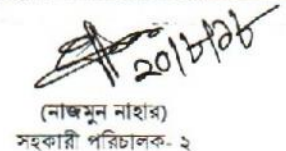 ২০/৮/১৮
(নাজমুন নাহার)
সহকারী পরিচালক- ২